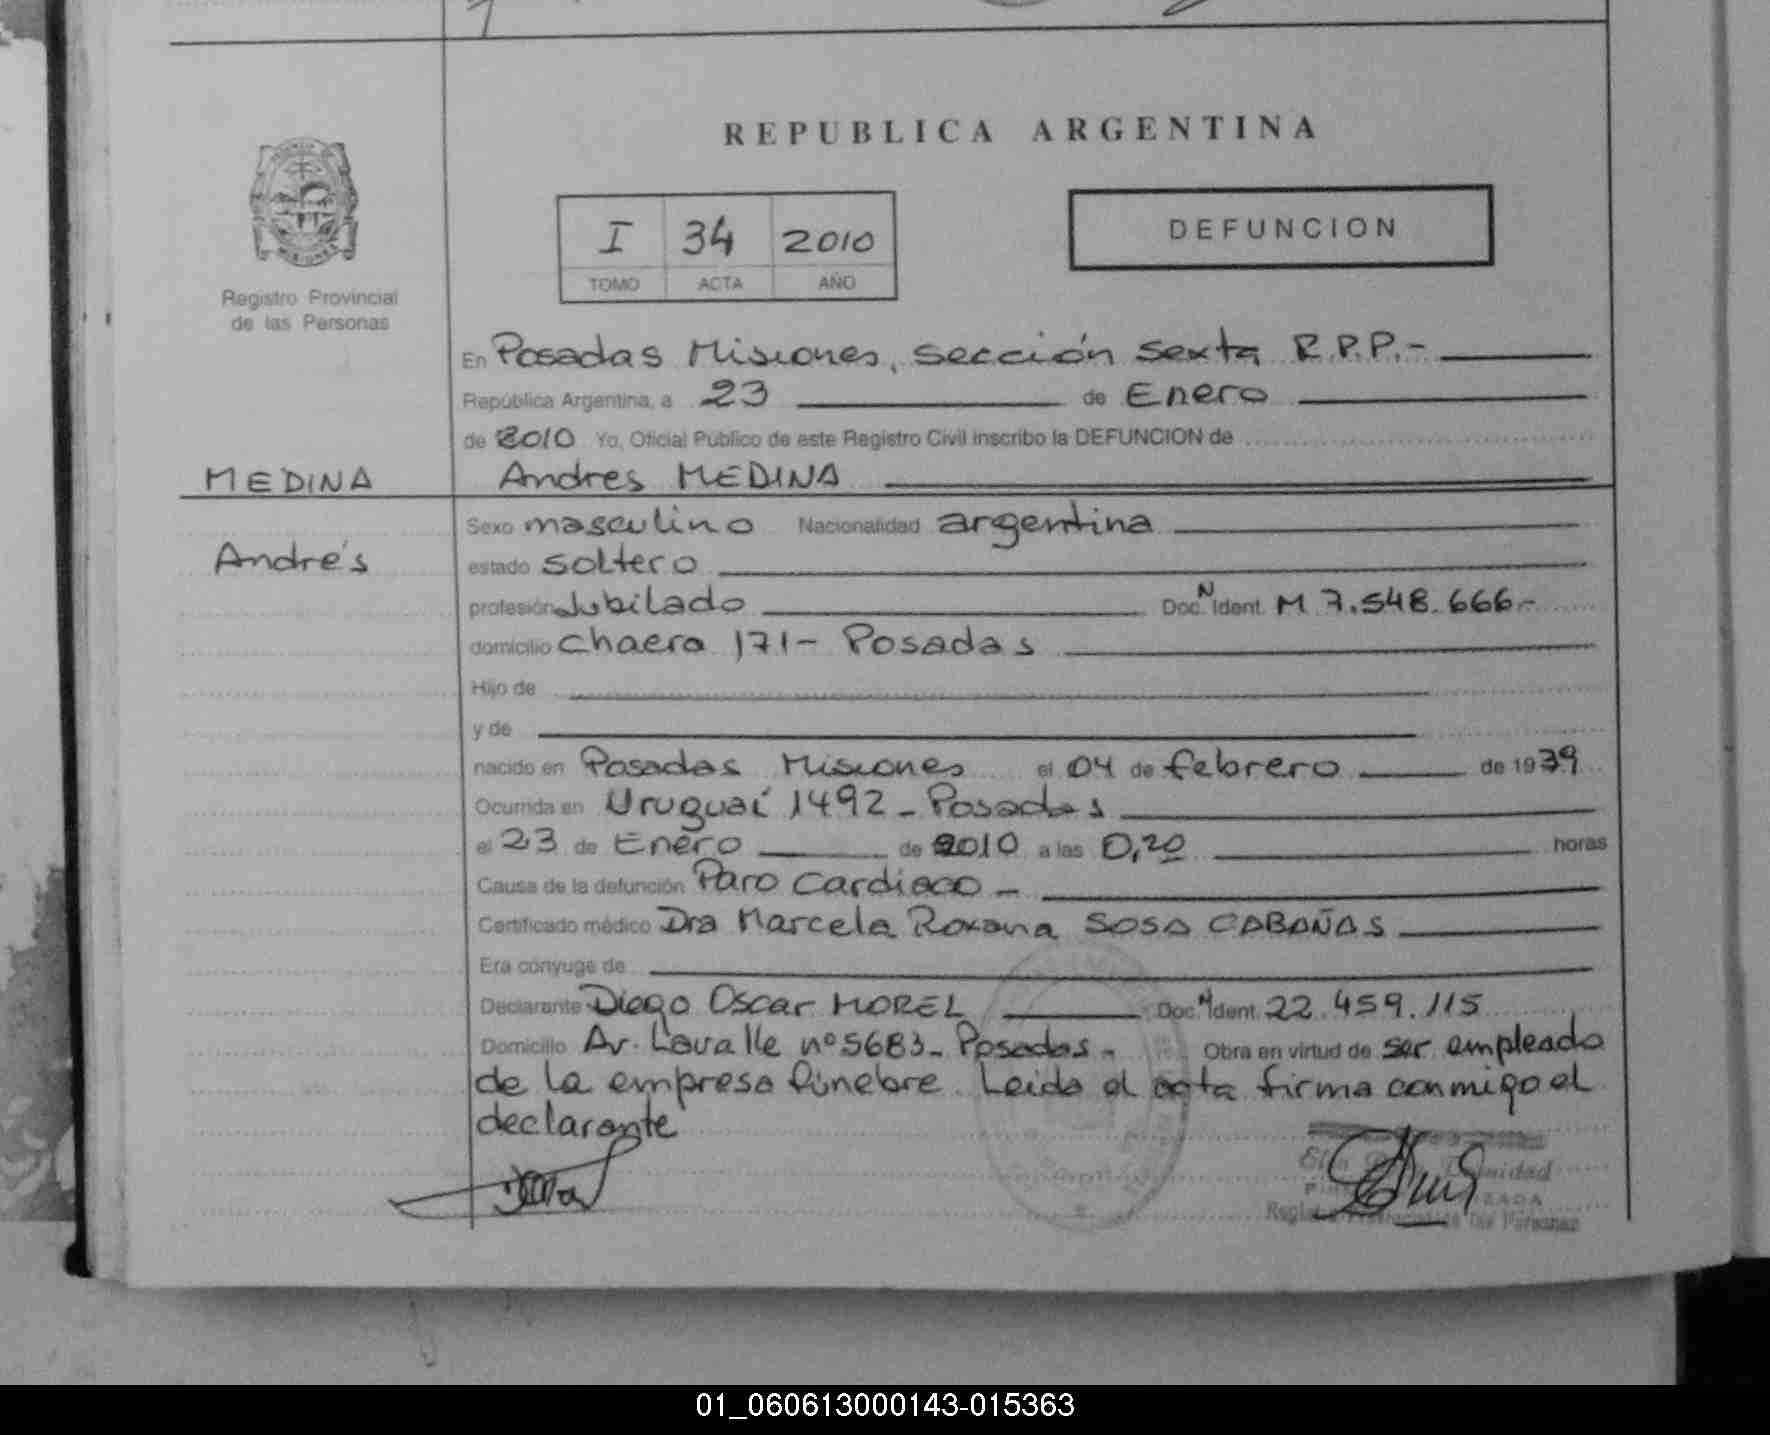 REPUBLICA ARGENTINA
I 34 2010
TOMO ACTA AÑO
DEFUNCION
Registro Provincial
de las Personas
En Posadas Misiones, sección sexta R.P.P.-
República Argentina, a 23 de Enero
de 2010 Yo, Oficial Público de este Registro Civil inscribo la DEFUNCION de
MEDINA
Andres MEDINA
Andrés
Sexo masculino Nacionalidad argentina
estado soltero
profesión Jubilado Doc. N Ident. M 7.548.666.-
domicilio chacra 171- Posadas
Hijo de
y de
nacido en Posadas Misiones el 04 de febrero de 1939
Ocurrida en Uruguaí 1492 - Posadas
el 23 de Enero de 2010 a las 0,20 horas
Causa de la defunción Paro Cardiaco -
Certificado médico Dra Marcela Roxana SOSA CABAÑAS
Era cónyuge de
Declarante Diego Oscar MOREL Doc. N Ident. 22.459.115
Domicilio Av. Lavalle nº 5683- Posadas - Obra en virtud de ser empleado
de la empresa fúnebre. Leida el acta firma conmigo el
declarante
Registro Provincial de las Personas
01_060613000143-015363